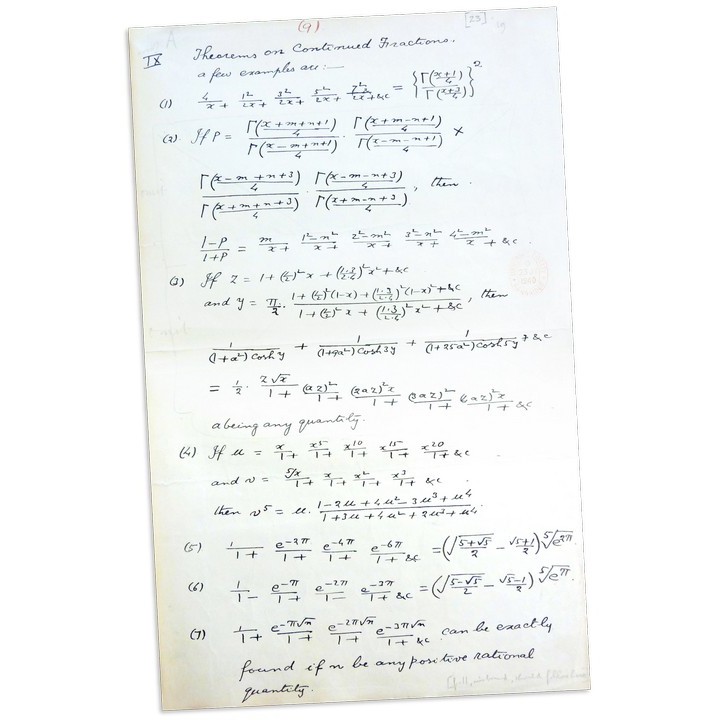 (9)
[25]
IX Theorems on Continued Fractions.
a few examples are:—
(1) 4/x+ 1²/2x+ 3²/2x+ 5²/2x+ 7²/2x+&c = {Γ((x+1)/4)/Γ((x+3)/4)}²
(2) If P = Γ((x+m+n+1)/4)/Γ((x-m+n+1)/4) · Γ((x+m-n+1)/4)/Γ((x-m-n+1)/4) ×
Γ((x-m+n+3)/4)/Γ((x+m+n+3)/4) · Γ((x-m-n+3)/4)/Γ((x+m-n+3)/4), then
(1-P)/(1+P) = m/x+ (1²-n²)/x+ (2²-m²)/x+ (3²-n²)/x+ (4²-m²)/x + &c
(3) If z = 1+(1/2)²x + (1·3/2·4)²x²+&c
and y = π/2 · (1+(1/2)²(1-x)+(1·3/2·4)²(1-x)²+&c)/(1+(1/2)²x + (1·3/2·4)²x²+&c), then
1/((1+a²)Cosh y) + 1/((1+9a²)Cosh 3y) + 1/((1+25a²)Cosh 5y) + &c
= 1/2 · z√x/1+ (az)²/1+ (2az)²x/1+ (3az)²/1+ (4az)²x/1+ &c
a being any quantity.
(4) If u = x/1+ x⁵/1+ x¹⁰/1+ x¹⁵/1+ x²⁰/1+&c
and v = ⁵√x/1+ x/1+ x²/1+ x³/1+ &c
then v⁵ = u · (1-2u+4u²-3u³+u⁴)/(1+3u+4u²+2u³+u⁴)
(5) 1/1+ e^(-2π)/1+ e^(-4π)/1+ e^(-6π)/1+ &c = (√((5+√5)/2) - (√5+1)/2) ⁵√(e^(2π))
(6) 1/1- e^(-π)/1+ e^(-2π)/1- e^(-3π)/1+ &c = (√((5-√5)/2) - (√5-1)/2) ⁵√(e^π)
(7) 1/1+ e^(-π√n)/1+ e^(-2π√n)/1+ e^(-3π√n)/1+ &c can be exactly
found if n be any positive rational
quantity.